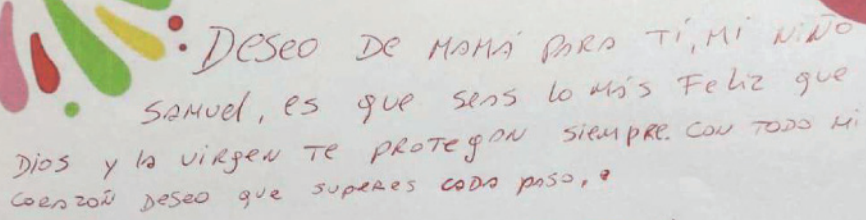 Deseo De mamá para Ti, Mi niño
Samuel, es que seas lo más Feliz que
Dios y la virgen Te protegan siempre. con Todo mi
corazoñ Deseo que superes cada paso,